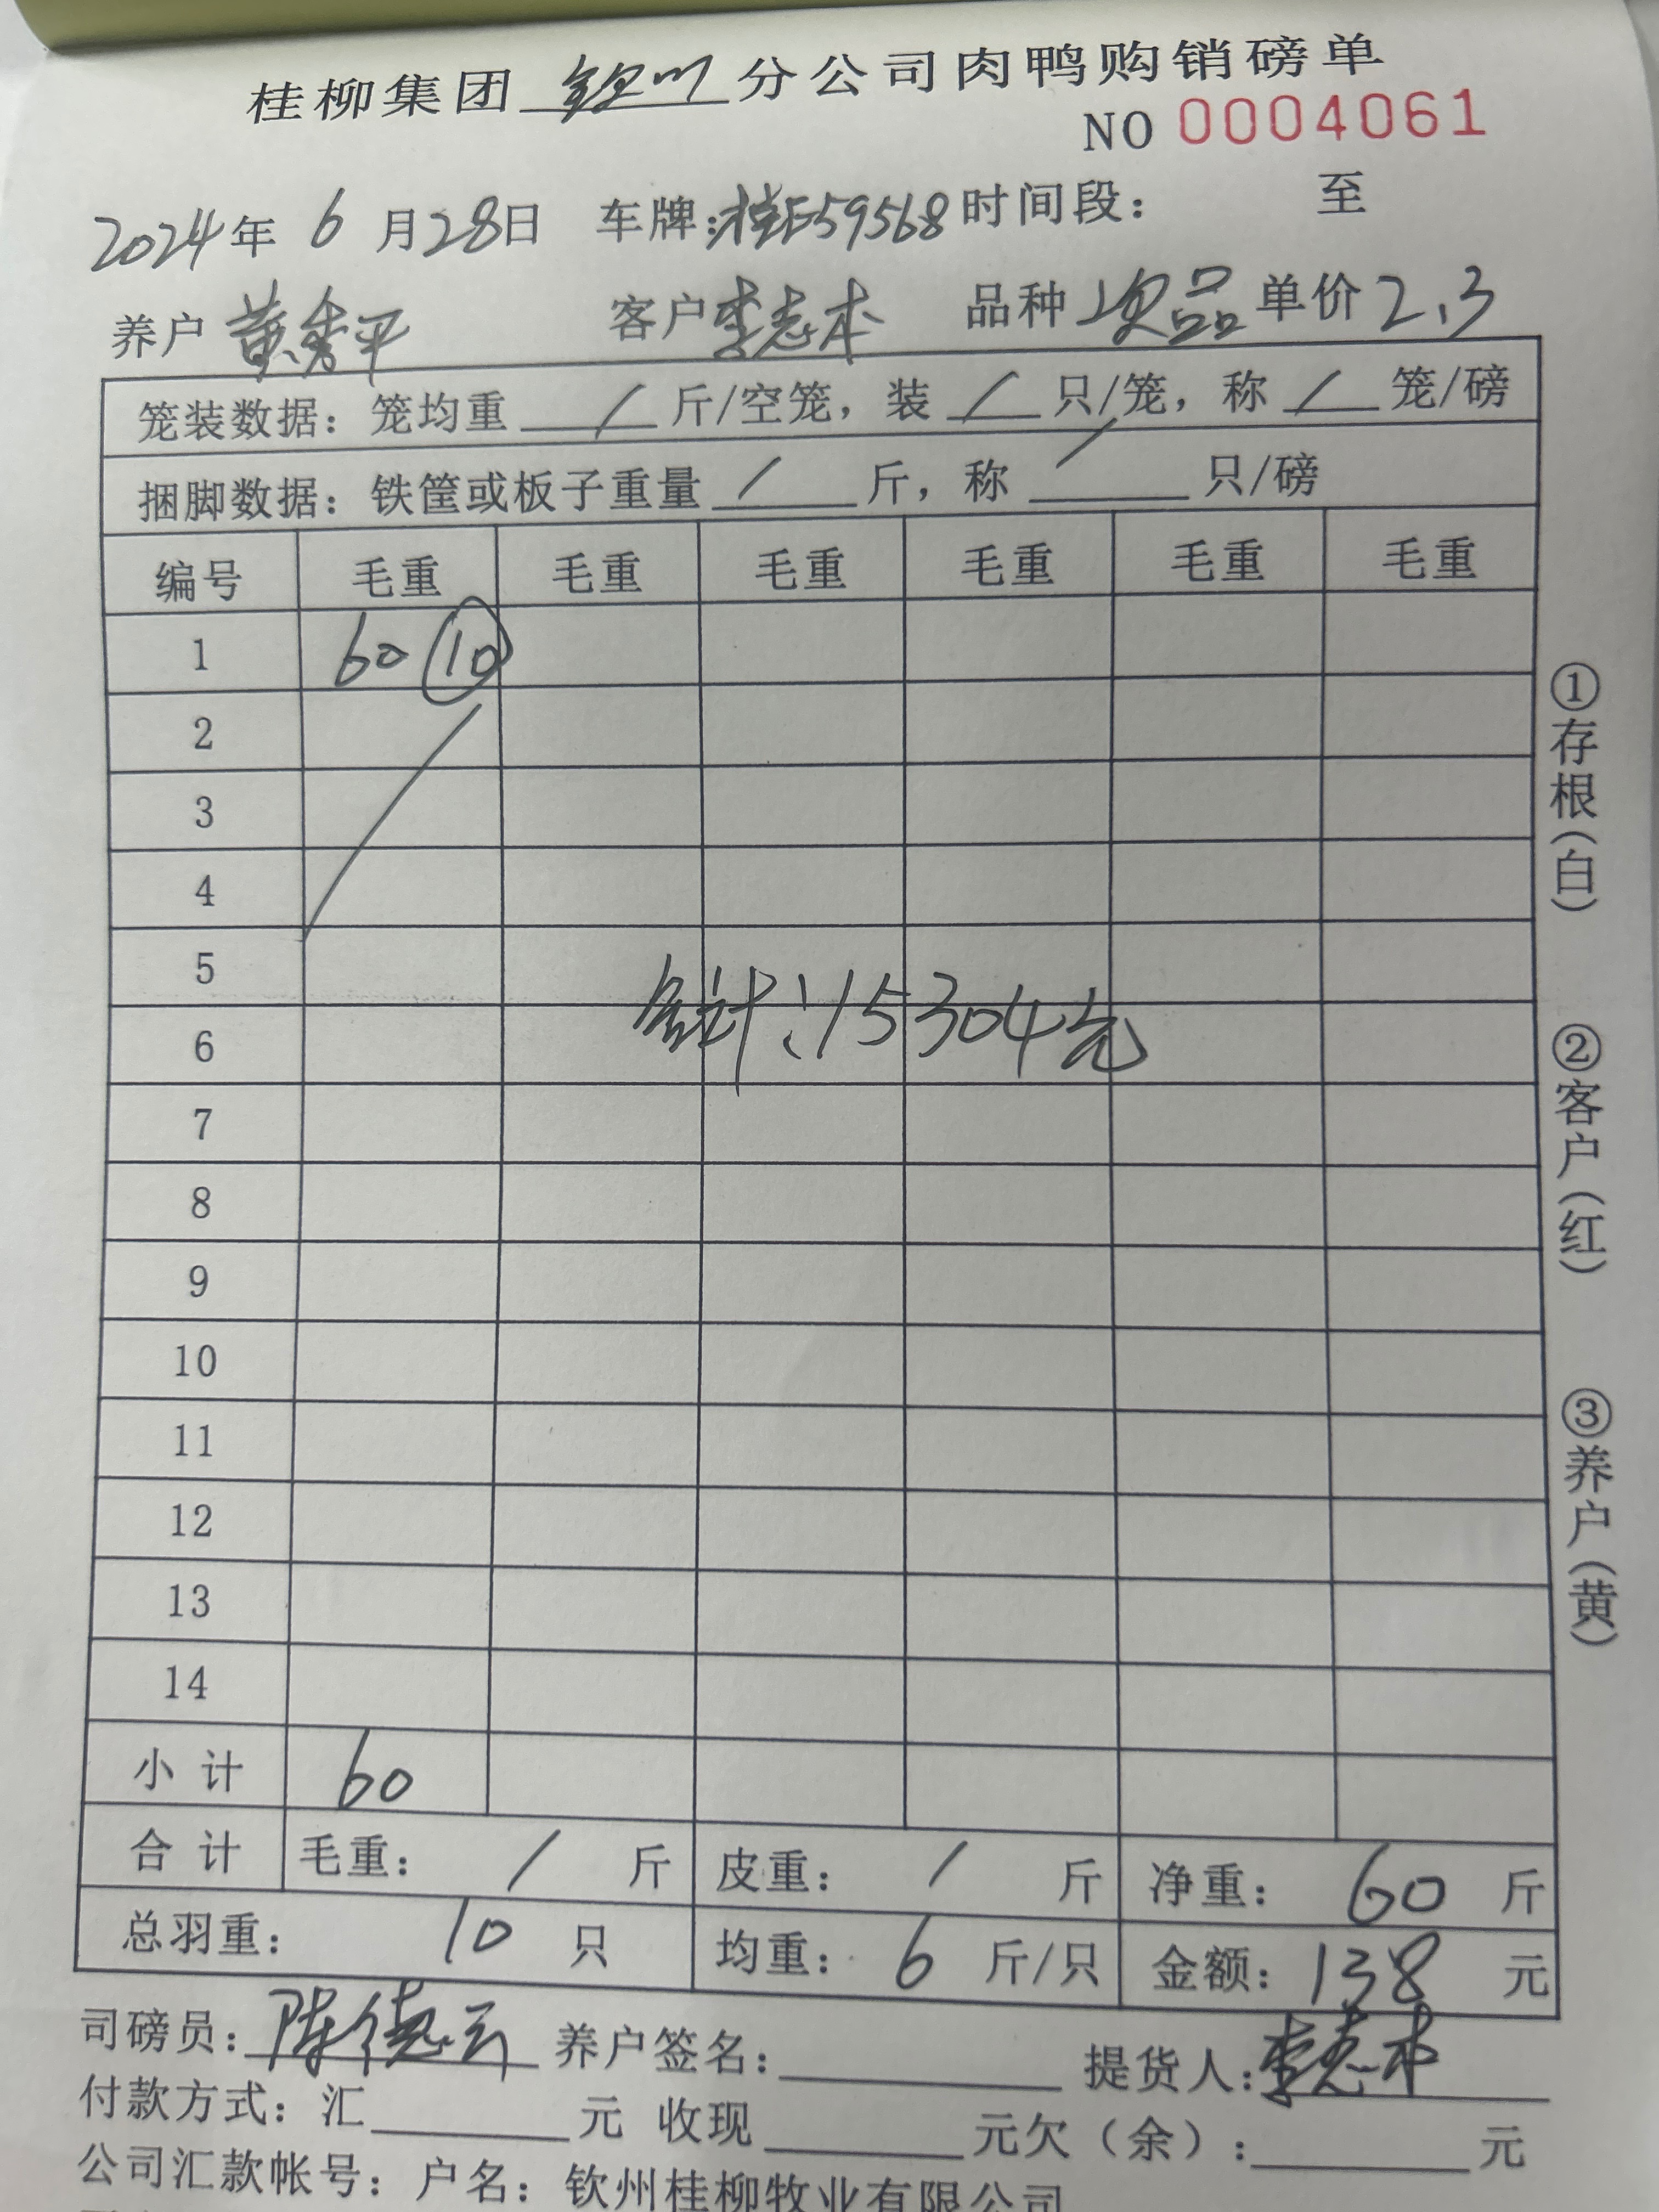 桂柳集团钦州分公司肉鸭购销磅单
NO 0004061
2024年 6 月28日 车牌:桂E59568 时间段: 至
养户 黄秀平 客户 李志本 品种 次品 单价 2.3
笼装数据: 笼均重 / 斤/空笼, 装 / 只/笼, 称 / 笼/磅
捆脚数据: 铁筐或板子重量 / 斤, 称 / 只/磅
编号 毛重 毛重 毛重 毛重 毛重 毛重
1 60 10
2
3
4
5
合计:15304元
6
7
8
9
10
11
12
13
14
小计 60
合计 毛重: / 斤 皮重: / 斤 净重: 60 斤
总羽重: 10 只 均重: 6 斤/只 金额: 138 元
司磅员: 陈德云 养户签名: 提货人: 李志本
付款方式: 汇 元 收现 元欠(余): 元
公司汇款帐号: 户名: 钦州桂柳牧业有限公司
①存根(白)
②客户(红)
③养户(黄)